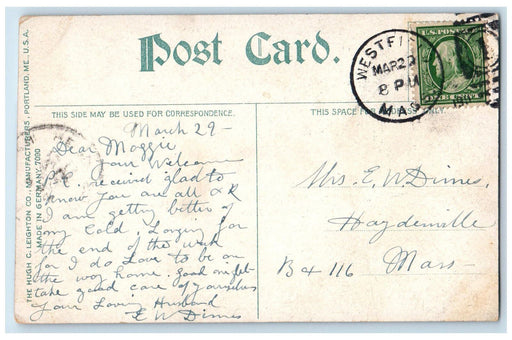 Post Card.
THIS SIDE MAY BE USED FOR CORRESPONDENCE.
THIS SPACE FOR ADDRESS ONLY.
THE HUGH C. LEIGHTON CO., MANUFACTURERS, PORTLAND, ME. U.S.A.
MADE IN GERMANY. 7000
WESTFI
MAR 29
8 PM
MASS
U.S. POSTAGE
ONE CENT
March 29-
Dear Maggie
Your Welcome
received glad to
know you are all OK
I am getting better of
my Cold, Longing for
the end of the week
for I do Love to be on
the way home. good night
take good care of yourselves
Your Loving Husband
E W Dimes
Mrs. E. W. Dimes,
Haydenville
Box 116 Mass-